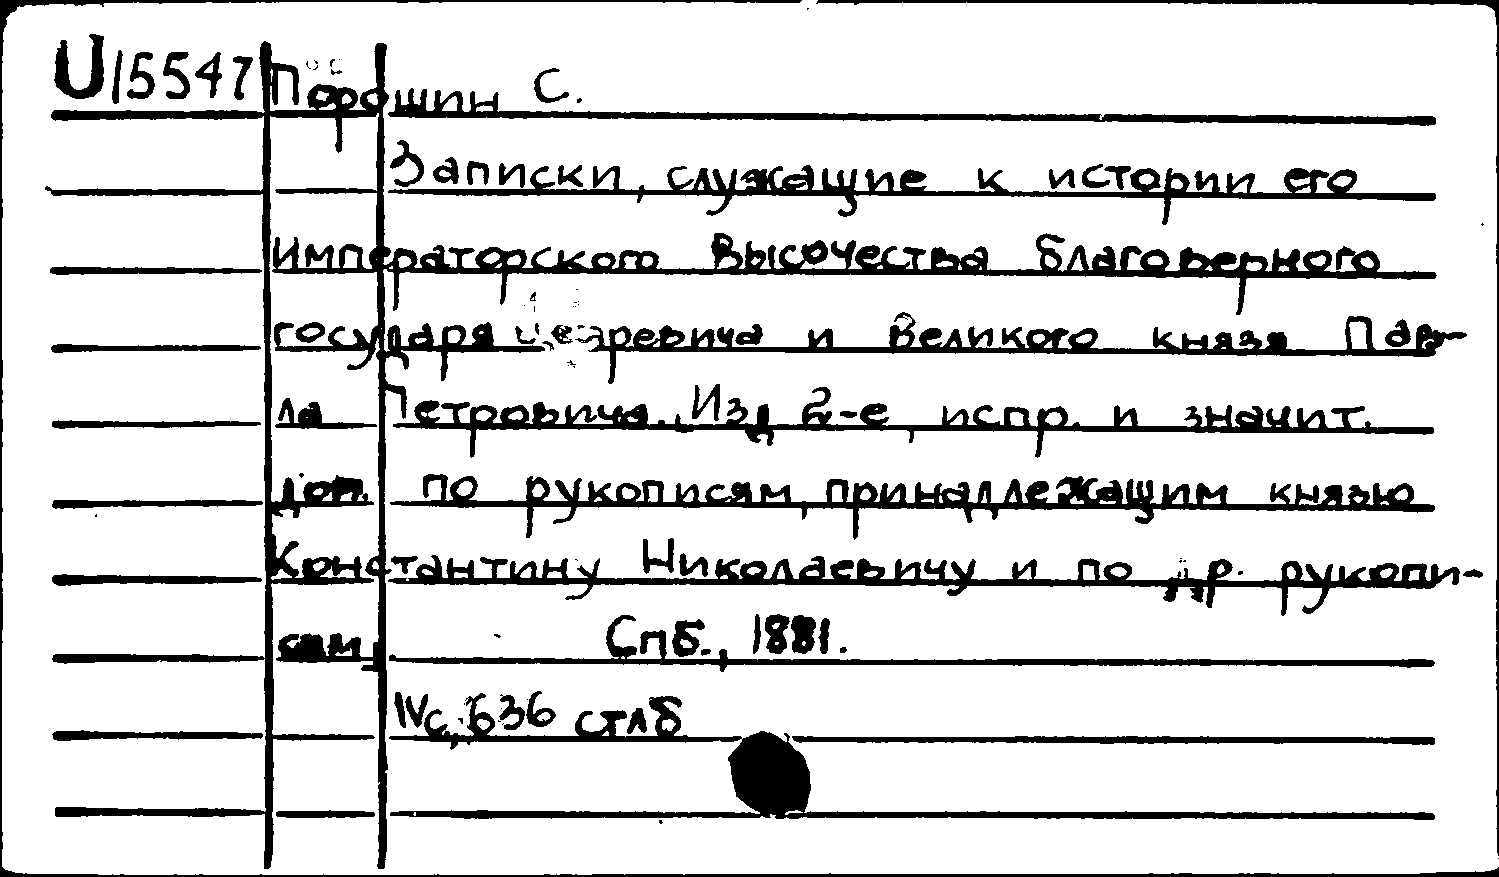 U15547 Порошин С.
Записки, служащие к истории его
императорского Высочества благоверного
государя цесаревича и Великого князя Пав-
ла Петровича. Изд 2-е, испр. и значит.
доп. по рукописям, принадлежащим князю
Константину Николаевичу и по др. рукопи-
сям, Спб., 1881.
IVс, 636 стлб